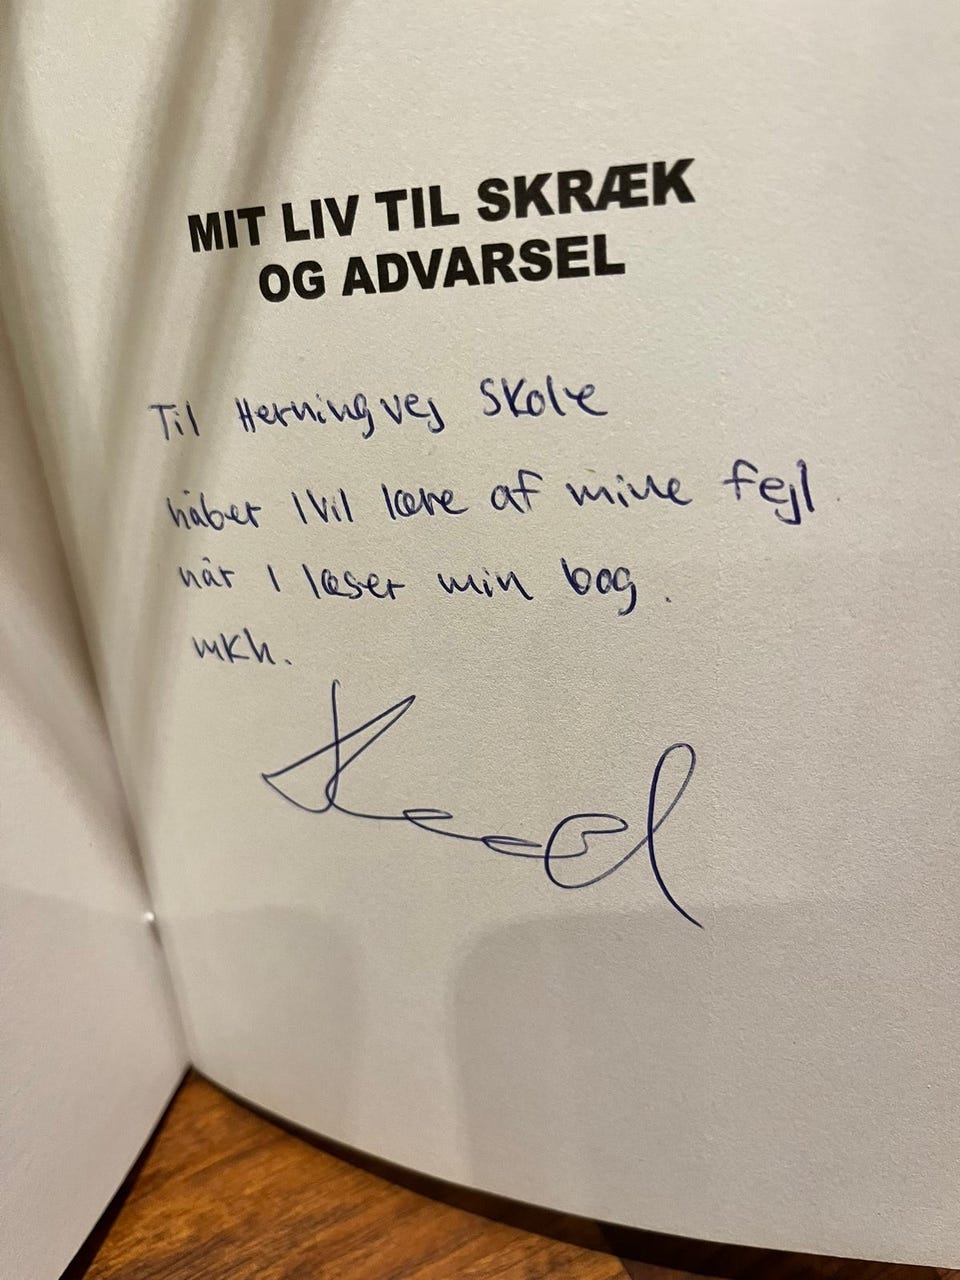 MIT LIV TIL SKRÆK
OG ADVARSEL
Til Herningvej Skole
håber I vil lære af mine fejl
når I læser min bog.
mkh.